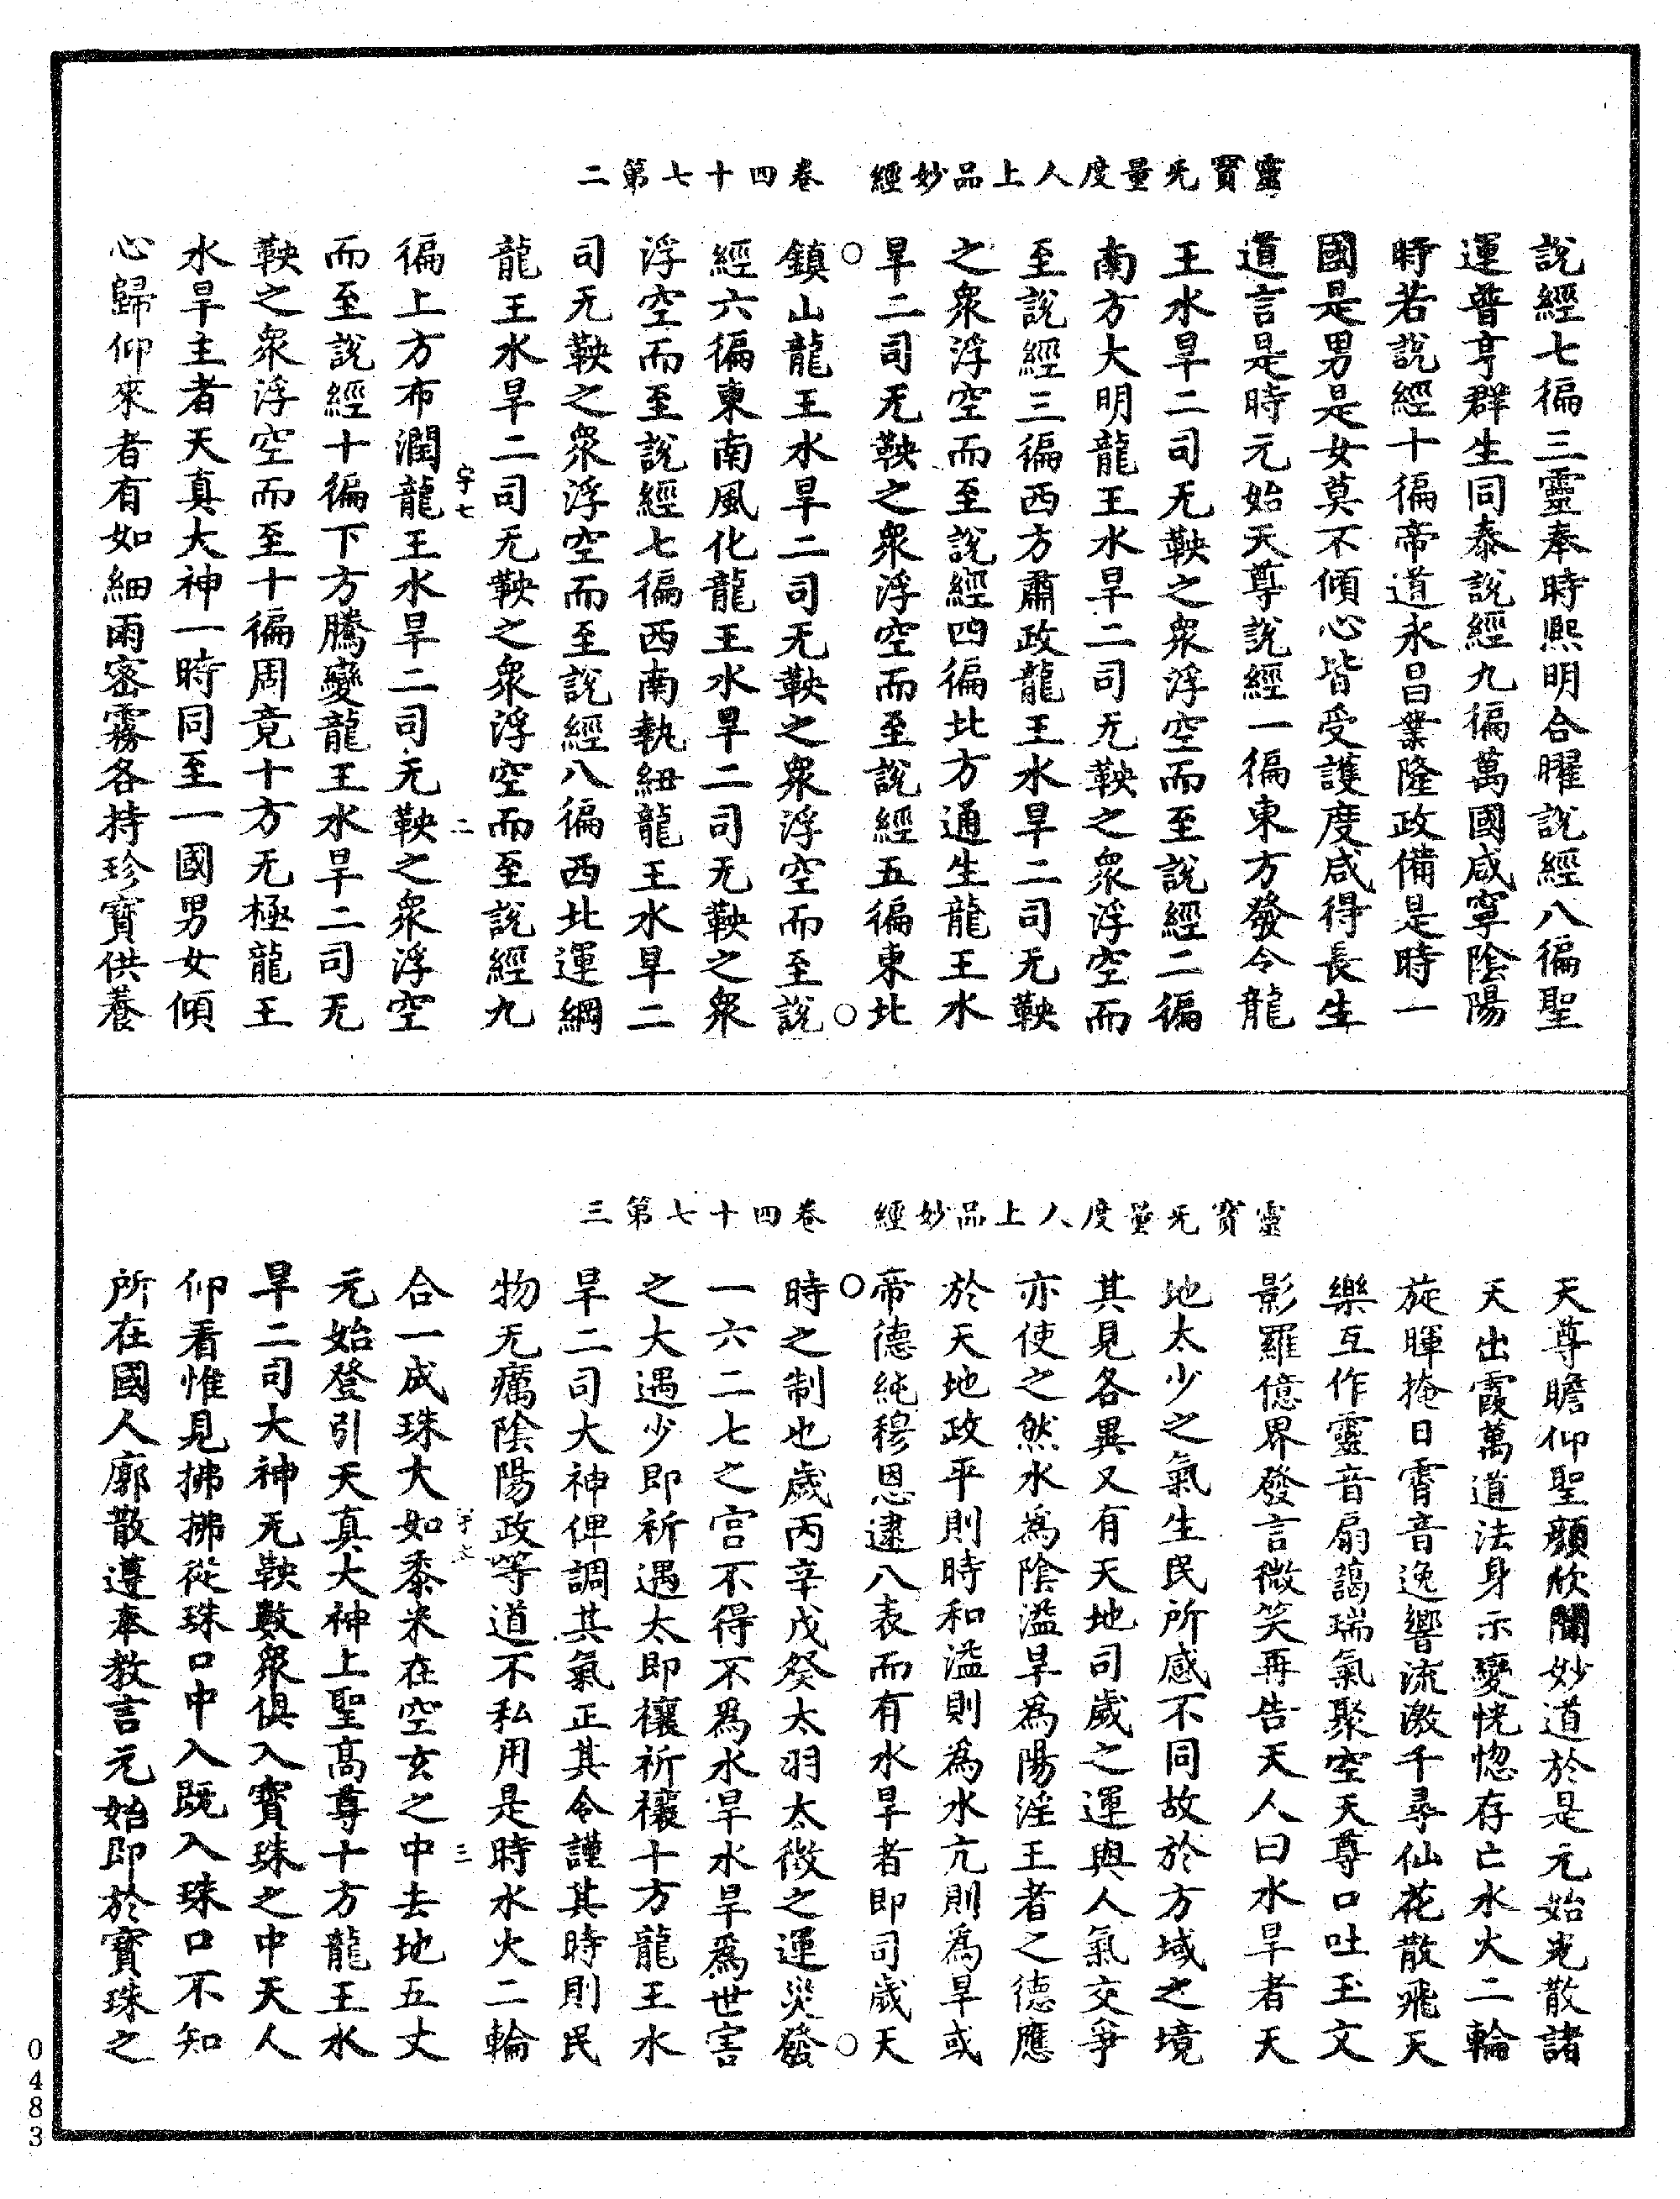 靈寶无量度人上品妙經　卷四十七第二
說經七徧三靈奉時熈明合曜說經八徧聖
運普亨群生同泰說經九徧萬國咸寧陰陽
時若說經十徧帝道永昌業隆政備是時一
國是男是女莫不傾心皆受護度咸得長生
道言是時元始天尊說經一徧東方發令龍
王水旱二司无鞅之衆浮空而至說經二徧
南方大明龍王水旱二司无鞅之衆浮空而
至說經三徧西方肅政龍王水旱二司无鞅
之衆浮空而至說經四徧北方通生龍王水
旱二司无鞅之衆浮空而至說經五徧東北
鎮山龍王水旱二司无鞅之衆浮空而至說
經六徧東南風化龍王水旱二司无鞅之衆
浮空而至說經七徧西南執紐龍王水旱二
司无鞅之衆浮空而至說經八徧西北運綱
龍王水旱二司无鞅之衆浮空而至說經九
字七　二
徧上方布潤龍王水旱二司无鞅之衆浮空
而至說經十徧下方騰變龍王水旱二司无
鞅之衆浮空而至十徧周竟十方无極龍王
水旱主者天真大神一時同至一國男女傾
心歸仰來者有如細雨密霧各持珍寶供養
靈寶无量度人上品妙經　卷四十七第三
天尊瞻仰聖顏欣聞妙道於是元始光散諸
天出霞萬道法身示變恍惚存亡水火二輪
旋暉掩日霄音逸響流激千尋仙花散飛天
樂互作靈音扇藹瑞氣聚空天尊口吐玉文
影羅億界發言微笑再告天人曰水旱者天
地太少之氣生民所感不同故於方域之境
其見各異又有天地司歲之運與人氣交爭
亦使之然水為陰溢旱為陽淫王者之德應
於天地政平則時和溢則為水亢則為旱或
帝德純穆恩逮八表而有水旱者即司歲天
時之制也歲丙辛戊癸太羽太徵之運災發
一六二七之宫不得不為水旱水旱為世害
之大遇少即祈遇太即禳祈禳十方龍王水
旱二司大神俾調其氣正其令謹其時則民
物无癘陰陽政等道不私用是時水火二輪
三
合一成珠大如黍米在空玄之中去地五丈
元始登引天真大神上聖髙尊十方龍王水
旱二司大神无鞅數衆俱入寶珠之中天人
仰看惟見拂拂從珠口中入既入珠口不知
所在國人廓散遵奉教言元始即於寶珠之
0483